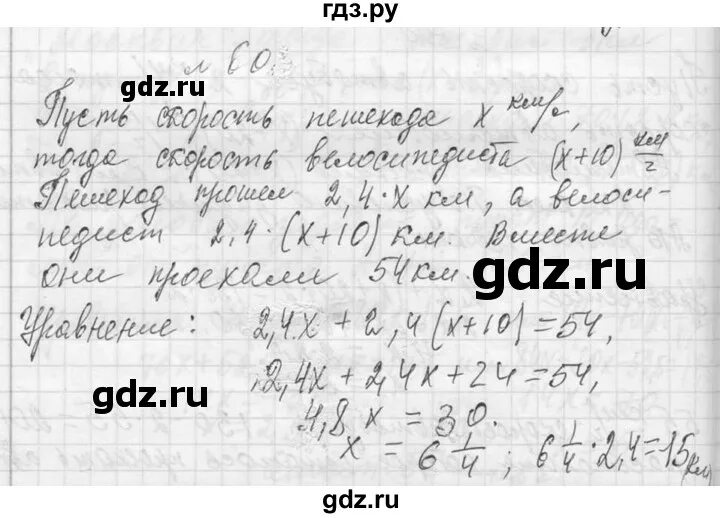 гдз.ру
№ 60.
gdz.ru
gdz.ru
Пусть скорость пешехода x км/ч,
тогда скорость велосипедиста (x+10) км/ч
Пешеход прошел 2,4·x км, а велоси-
педист 2,4·(x+10) км. Вместе
они проехали 54 км.
gdz.ru
gdz.ru
Уравнение: 2,4x + 2,4(x+10) = 54,
2,4x + 2,4x + 24 = 54,
gdz.ru
gdz.ru
4,8x = 30.
x = 6 1/4 ; 6 1/4 · 2,4 = 15 (км)
gdz.ru